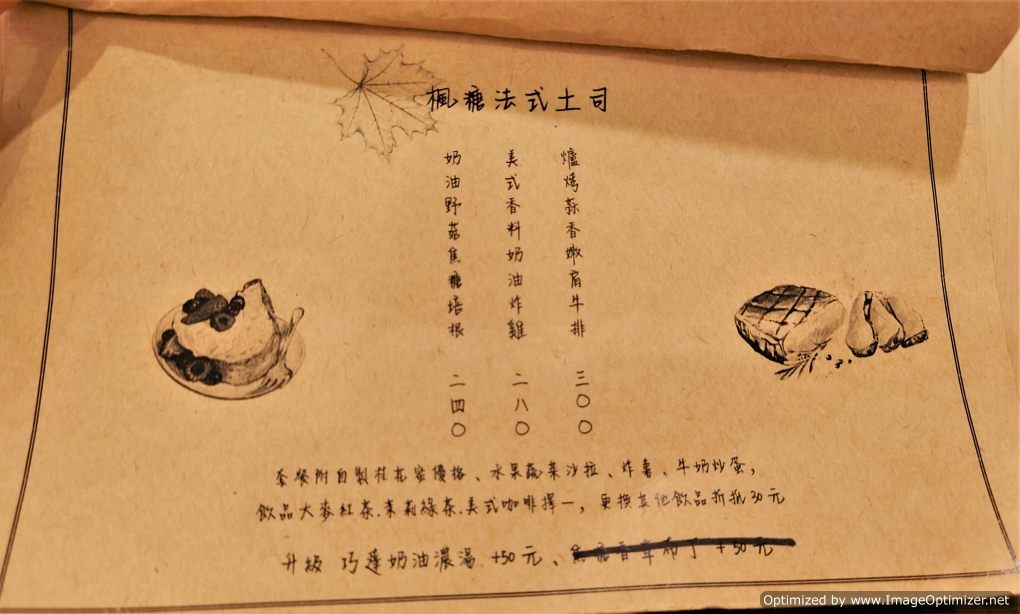 楓糖法式土司
爐烤蒜香嫩肩牛排 三〇〇
美式香料奶油炸雞 二八〇
奶油野菇焦糖培根 二四〇
套餐附自製桂花蜜優格、水果蔬菜沙拉、炸薯、牛奶炒蛋,
飲品大麥紅茶.茉莉綠茶.美式咖啡擇一,更換其他飲品折抵30元
升級 巧達奶油濃湯 +50元、焦糖香草布丁 +50元
Optimized by www.ImageOptimizer.net